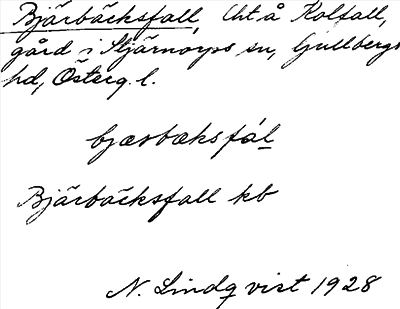 Bjärbäcksfall, Uht å Kolfall,
gård i Stjärnorps sn, Gullbergs
hd, Österg. l.
bjærbæksfál
Bjärbäcksfall kb
N. Lindqvist 1928